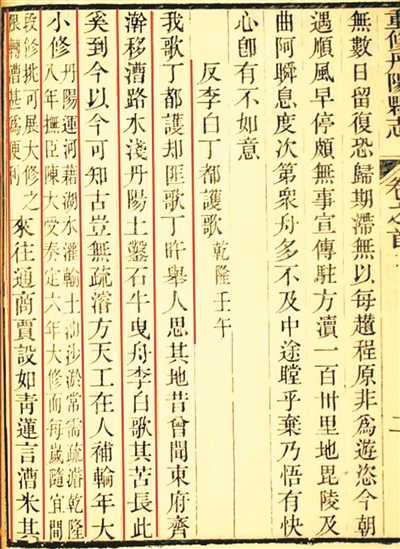 重修丹陽縣志 卷之首 二
無數日留復恐歸期滯無以每趲程原非為遊恣今朝
遇順風早停頗無事宣傳駐方瀆一百卅里地毘陵及
曲阿瞬息度次第衆舟多不及中途瞠乎棄乃悟有快
心卽有不如意
反李白丁都護歌 乾隆壬午
我歌丁都護却匪歌丁旿舉人思其地昔曾聞東府齊
澣移漕路水淺丹陽土鑿石牛曳舟李白歌其苦長此
奚到今以今可知古豈無疏濬方天工在人補輸年大
小修 丹陽運河藉湖水灌輸土油沙淤常需疏濬乾隆
八年撫臣陳大受奏定六年大修而每歲隨宜間
段修挑可展大修之
限轉漕甚為便利 來往通商賈設如青蓮言漕米其